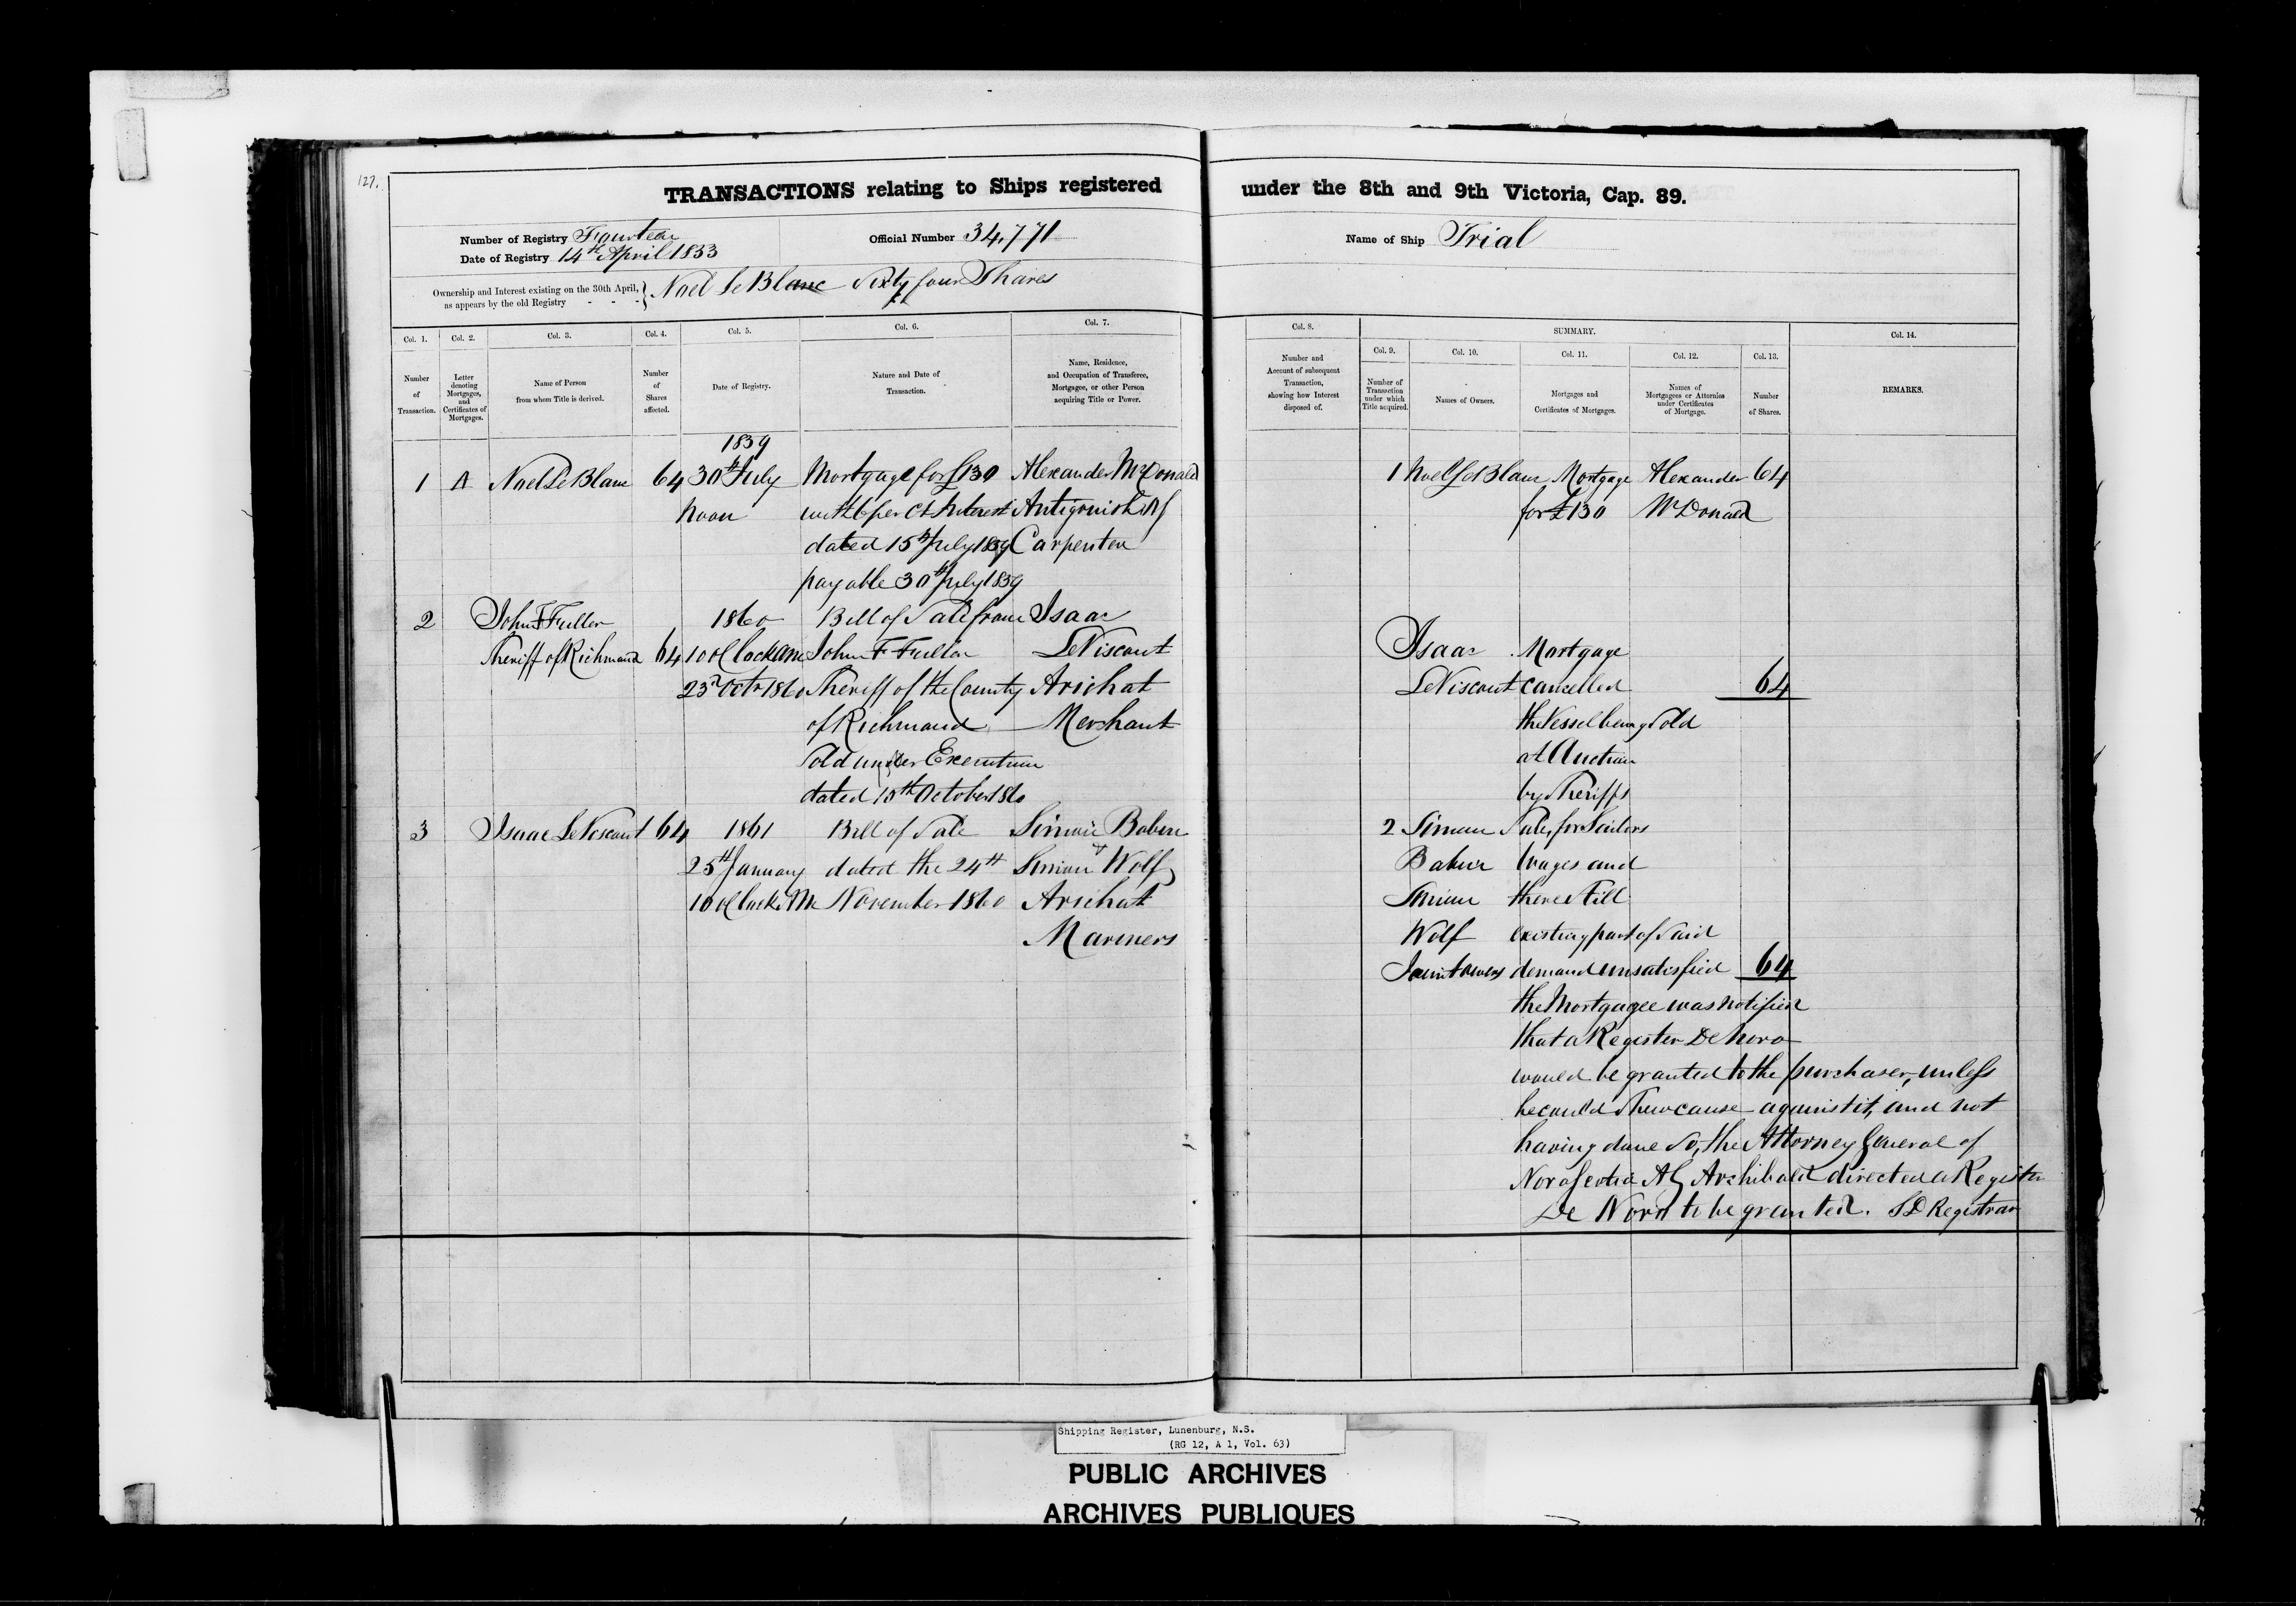 127.
TRANSACTIONS relating to Ships registered under the 8th and 9th Victoria, Cap. 89.
Number of Registry Fourteen
Date of Registry 14th April 1853
Official Number 34,771
Name of Ship Trial
Ownership and Interest existing on the 30th April,
as appears by the old Registry - - -
Noel Le Blanc Sixty four Shares
Col. 1.
Number
of
Transaction.
Col. 2.
Letter
denoting
Mortgages,
and
Certificates of
Mortgages.
Col. 3.
Name of Person
from whom Title is derived.
Col. 4.
Number
of
Shares
affected.
Col. 5.
Date of Registry.
Col. 6.
Nature and Date of
Transaction.
Col. 7.
Name, Residence,
and Occupation of Transferee,
Mortgagee, or other Person
acquiring Title or Power.
Col. 8.
Number and
Account of subsequent
Transaction,
showing how Interest
disposed of.
SUMMARY.
Col. 9.
Number of
Transaction
under which
Title acquired.
Col. 10.
Names of Owners.
Col. 11.
Mortgages and
Certificates of Mortgages.
Col. 12.
Names of
Mortgagees or Attornies
under Certificates
of Mortgage.
Col. 13.
Number
of Shares.
Col. 14.
REMARKS.
1859
1 A Noel Le Blanc 64 30th July Mortgage for £130 Alexander McDonald
Noon with 6 per Ct Interest Antigonish NS
dated 15th July 1859 Carpenter
payable 30th July 1859
2 John F Fuller 1860 Bill of Sale from Isaac
Sheriff of Richmond 64 10 oClock am John F Fuller LeViscont
23d Octr 1860 Sheriff of the County Arichat
of Richmond Merchant
Sold under Execution
dated 10th October 1860
3 Isaac LeViscont 64 1861 Bill of Sale Simon Babin
25th January dated the 24th Simon Wolf
10 oClock AM November 1860 Arichat
Mariners
1 Noel Le Blanc Mortgage Alexander 64
for £130 McDonald
Isaac Mortgage
LeViscont cancelled 64
the Vessel being Sold
at Auction
by Sheriffs
2 Simon Sale, for Sailors
Babin Wages and
Simon there Still
Wolf existing part of Said
Joint owners demand unsatisfied 64
the Mortgagee was notified
that a Register De Novo
would be granted to the purchaser, unless
he could Shew cause against it, and not
having done So, the Attorney General of
Nova Scotia AG Archibald directed a Register
De Novo to be granted. SD Registrar
Shipping Register, Lunenburg, N.S.
(RG 12, A 1, Vol. 63)
PUBLIC ARCHIVES
ARCHIVES PUBLIQUES